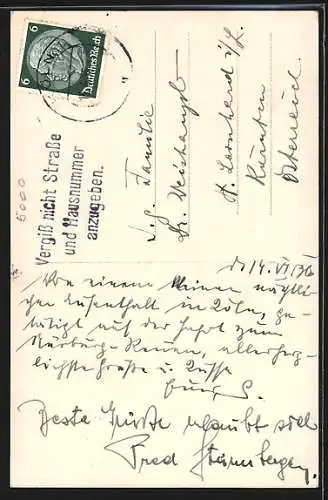 6 6
Deutsches Reich
Vergiß nicht Straße
und Hausnummer
anzugeben.
6000
Familie
Dr. Weishaupt
St. Leonhard i/L.
Kärnten
Österreich.
d. 14. VI. 36
Von einem kleinen nächtli-
chen Aufenthalt in Köln, ge-
tätigt auf der Fahrt zum
Nürburg-Rennen, allerherz-
lichste Grüße u. Küsse
Beste Grüße erlaubt sich
Fred